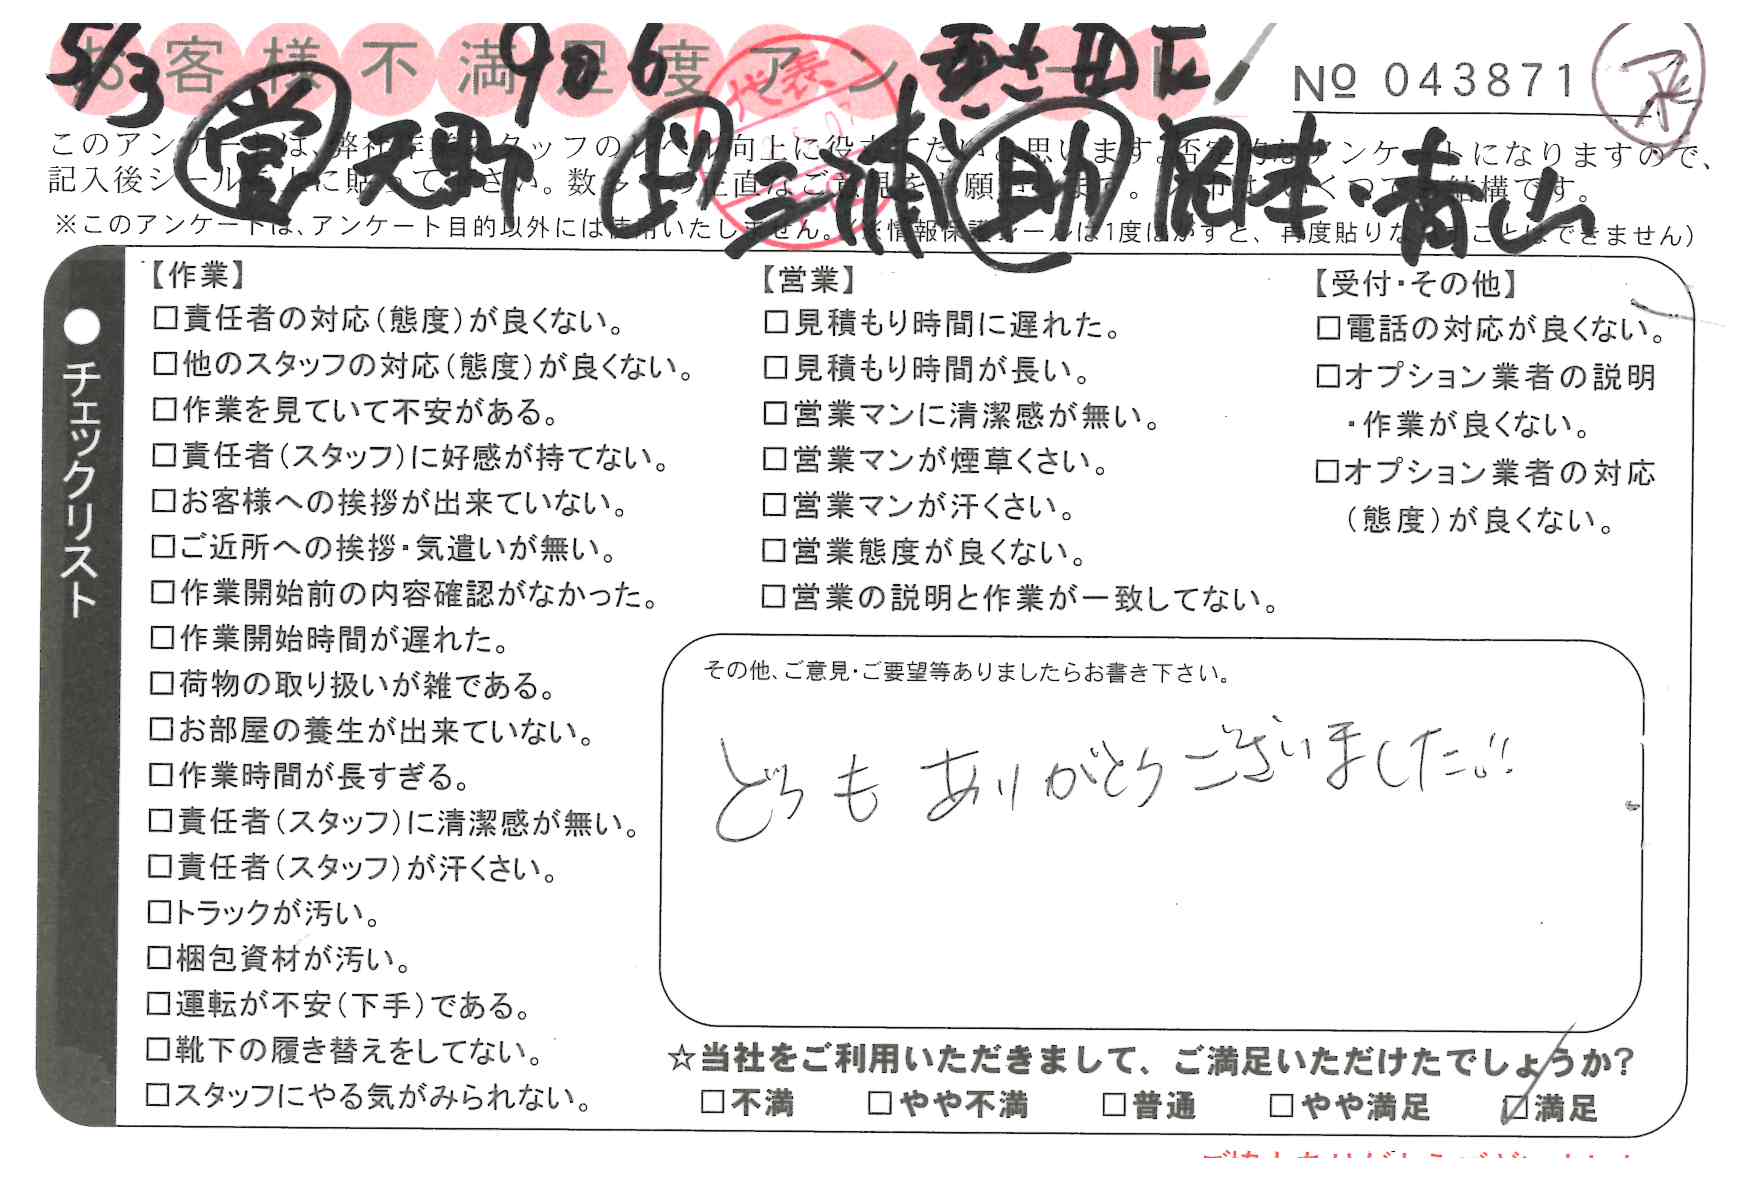 5/3 906
お客様不満足度アンケート
No 043871
営 天野 三浦 助 岡本・青山
代表
このアンケートは、弊社作業スタッフのレベル向上に役立てたいと思います。否定的なアンケートになりますので、
記入後シールを上に貼って下さい。
※このアンケートは、アンケート目的以外には使用いたしません。(※情報保護シールは1度はがすと、再度貼りなおすことはできません)
●チェックリスト
【作業】
□責任者の対応(態度)が良くない。
□他のスタッフの対応(態度)が良くない。
□作業を見ていて不安がある。
□責任者(スタッフ)に好感が持てない。
□お客様への挨拶が出来ていない。
□ご近所への挨拶・気遣いが無い。
□作業開始前の内容確認がなかった。
□作業開始時間が遅れた。
□荷物の取り扱いが雑である。
□お部屋の養生が出来ていない。
□作業時間が長すぎる。
□責任者(スタッフ)に清潔感が無い。
□責任者(スタッフ)が汗くさい。
□トラックが汚い。
□梱包資材が汚い。
□運転が不安(下手)である。
□靴下の履き替えをしてない。
□スタッフにやる気がみられない。
【営業】
□見積もり時間に遅れた。
□見積もり時間が長い。
□営業マンに清潔感が無い。
□営業マンが煙草くさい。
□営業マンが汗くさい。
□営業態度が良くない。
□営業の説明と作業が一致してない。
【受付・その他】
□電話の対応が良くない。
□オプション業者の説明
・作業が良くない。
□オプション業者の対応
(態度)が良くない。
その他、ご意見・ご要望等ありましたらお書き下さい。
どうもありがとうございました!!
☆当社をご利用いただきまして、ご満足いただけたでしょうか?
□不満 □やや不満 □普通 □やや満足 ☑満足